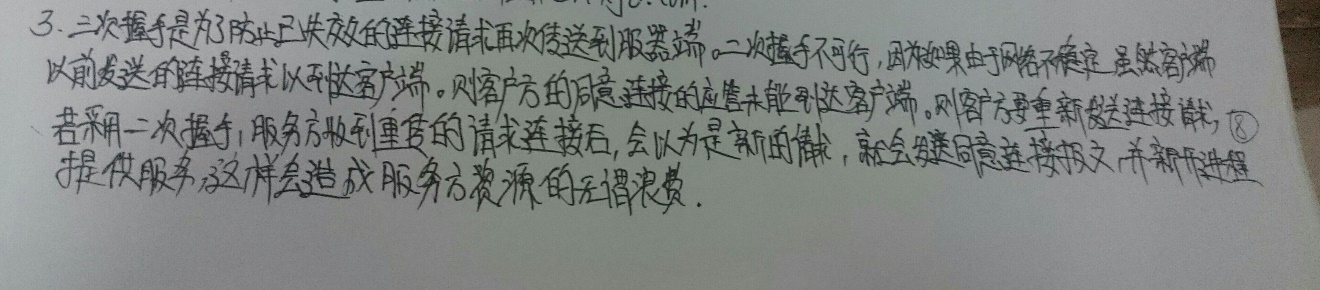 3.三次握手是为了防止已失效的连接请求再次传送到服器端。二次握手不可行，因为如果由于网络不稳定 虽然客户端
以前发送的连接请求以到达客户端。则客户方的同意连接的应答未能到达客户端。则客户方要重新发送连接请求,
若采用二次握手,服务方收到重传的请求连接后,会以为是新的请求,就会发送同意连接报文,并新开进程 ⑧
提供服务,这样会造成服务方资源的无谓浪费.